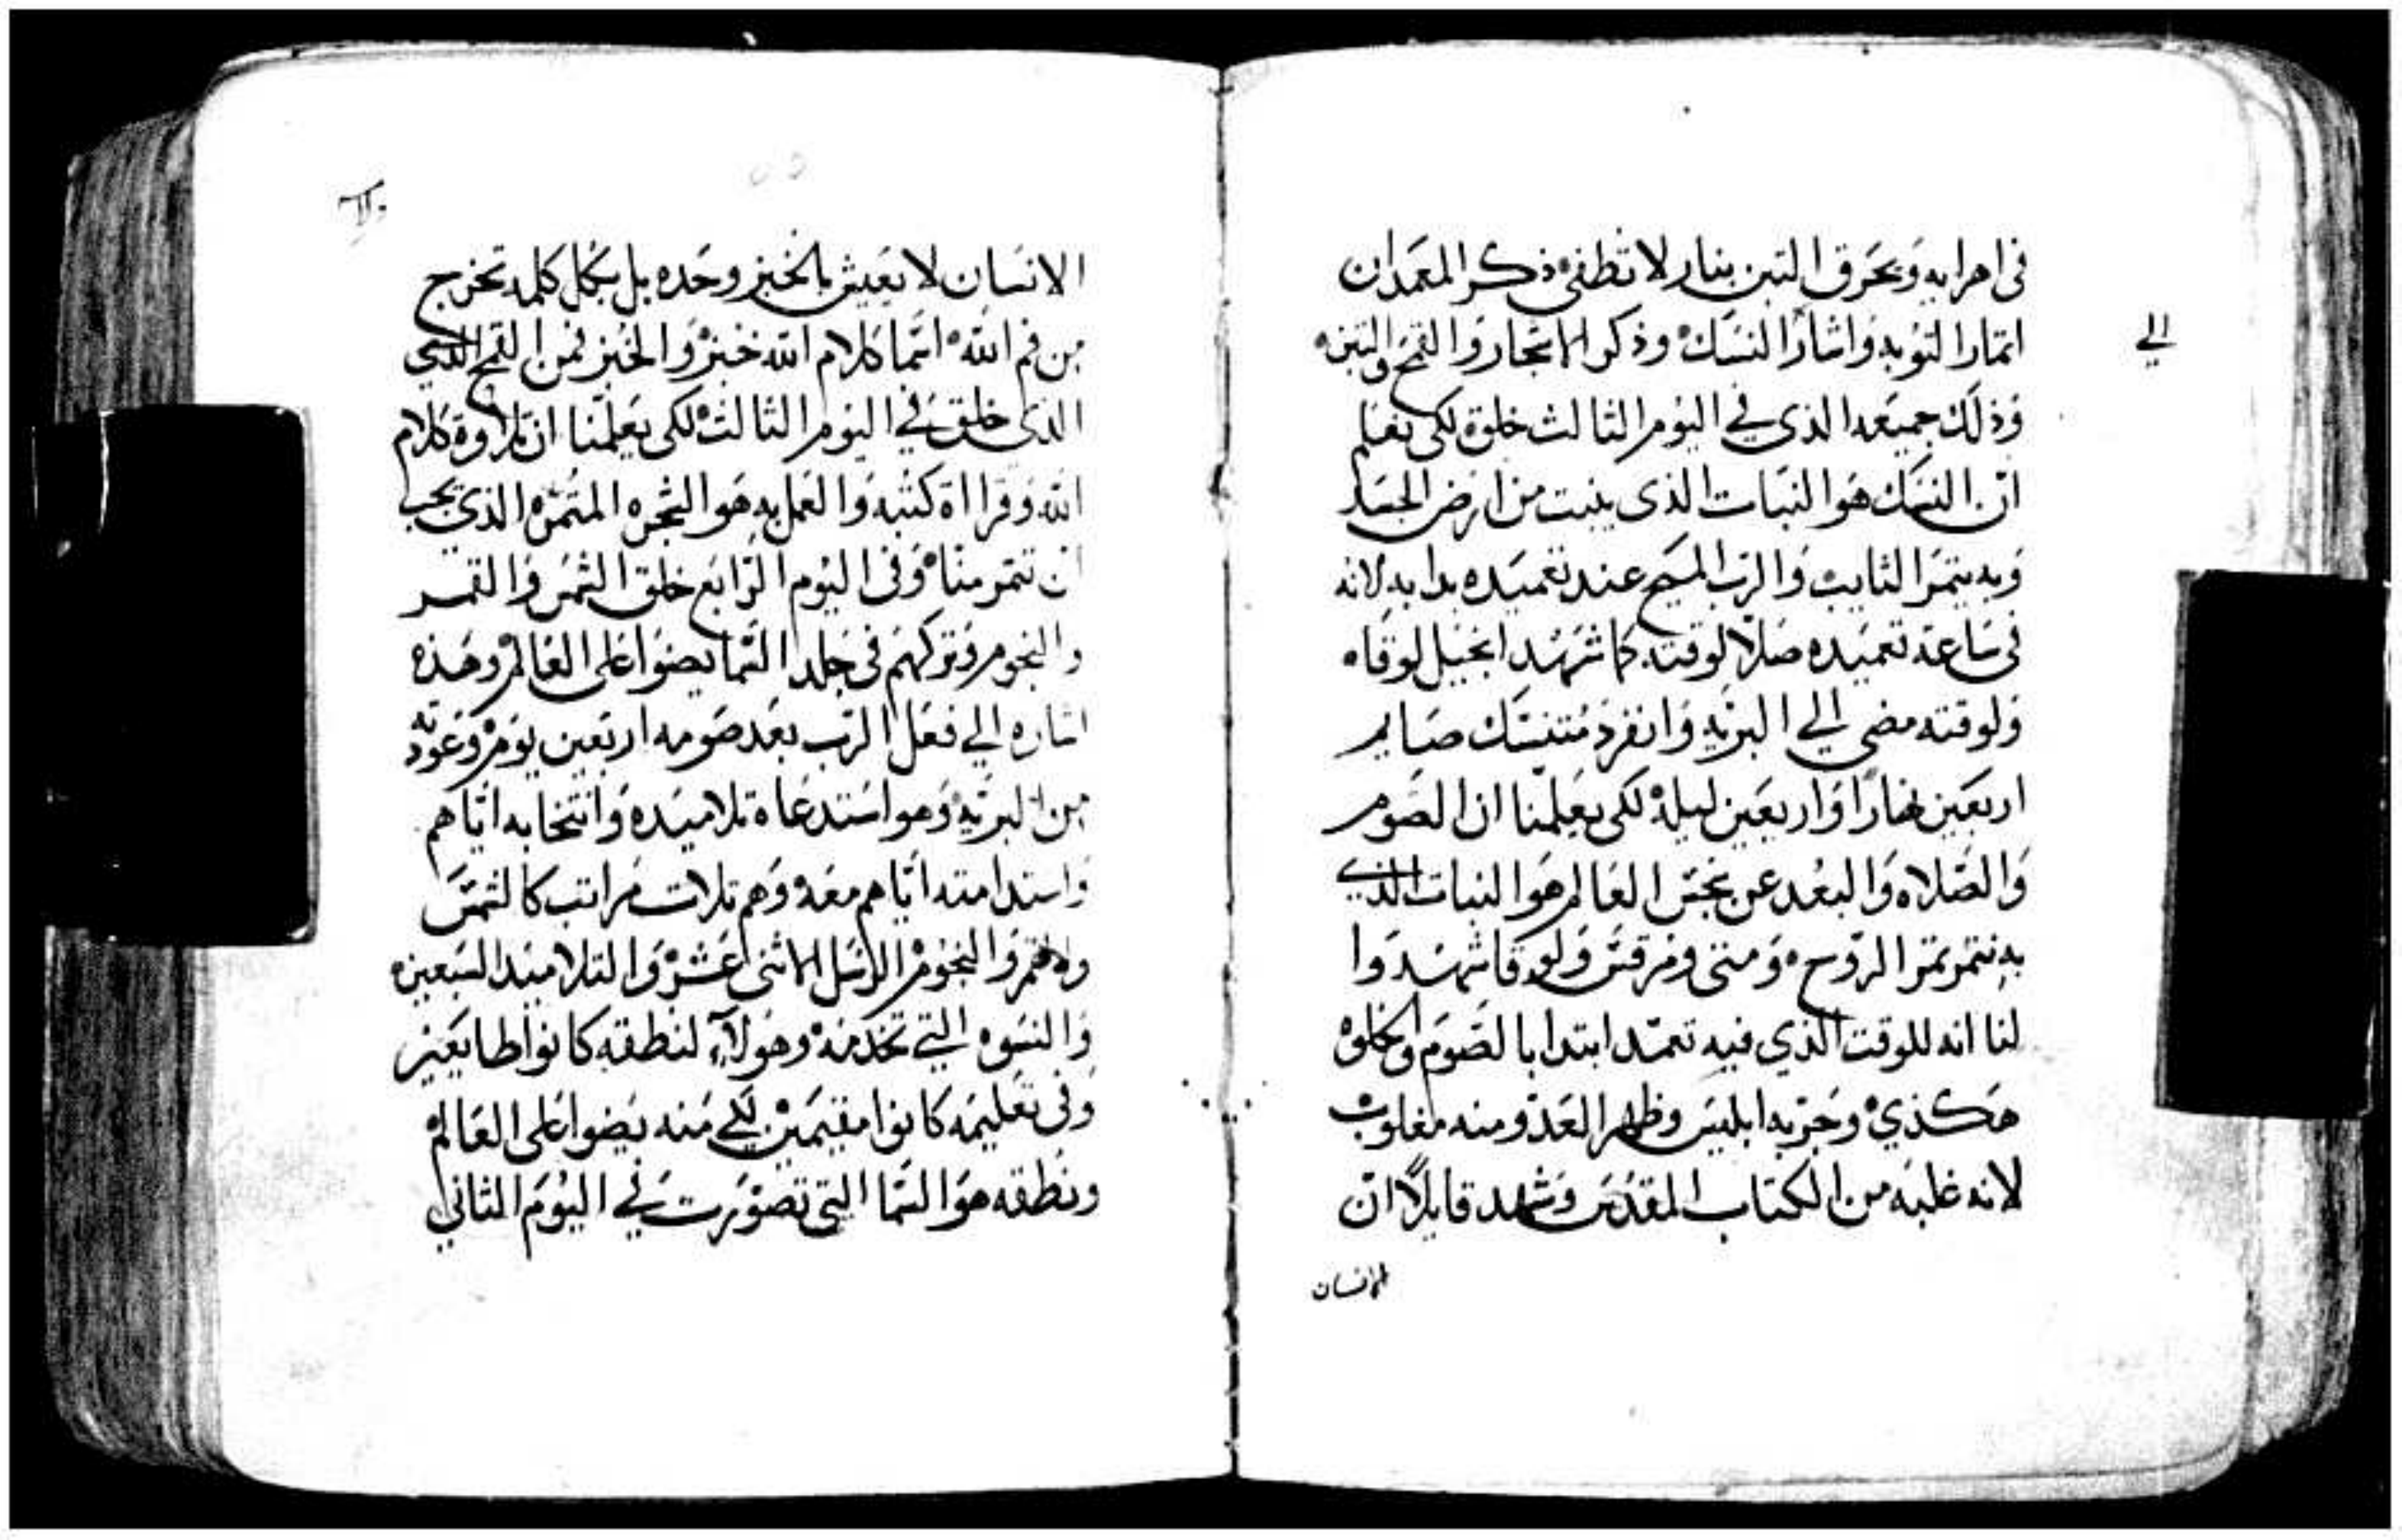 في اهرايه وَيحَرق التبن بنار لا تطفىء ذكر المعَمدان
اتمار التوُبه وَاشار النسَك وذكر الاشجار وَالقمَح والتبن
وَذلك جميَعه الذي في اليوَم الثالث خلق لكي نعَلم
انّ النسَك هَو النبَات الذي ينبت من ارَض الجسَد
وَبه يتمرَ التايبْ وَالربّ المسَيح عند تعَميَده بدا به لانه
في سَاعة تعميَده صَلّا لوقته كما شهَد انجيل لوقاه
وَلوقته مضي الي البريّه وَانفردَ مُتنسّك صَايم
اربَعين نهَارًا وَاربعَين ليلهْ لكي يعَلمّنا ان الصَوم
وَالصَلاه وَالبعُد عن نجسَ العَالم هوَ النبات الذي
به نتمر تمر الروّح وَمتي ومَرقسَ وَلوقا شهَدوا
لنا انه للوقت الذي فيه تعمّد ابتدا بالصَوم وَالخلوهْ
هَكذيْ وجَرّبه ابليسَ وظهر العَدّو منه مغلوبْ
لانه غلبَه من الكتاب المقدّسَ وشهد قايلاً انّ
الانسان
الي
الانسَان لا يعَيش بالخبز وحَده بل بكل كلمه تخرج
من فم الله انمّا كلام الله خبزْ وَالخبز فمن القمح الذي
الذي خلق في اليوَم الثالث لكي يعَلّمنا ان تلاوة كلام
الله وَقرااة كتبه وَالعَمل به هَو الشجره المثمره الذي يجب
ان تتمر منا وَفي اليوُم الرّابَع خلق الشمسَ وَالقمر
والنجوم وَتركهم في جلد السّما يضوا علي العَالم وهَذه
اشاره الي فعَل الربّ بعَد صَومه اربَعين يومْ وَعَودته
من البريّه وَهو استدعَاه تلاميَده وَانتخابه ايّاهم
وَاستدامته ايّاهم معَه وَهم تلات مَراتب كالشمسَ
والقمر وَالنجوم الرسَل الاثني عَشرْ وَالتلاميَد السَبعين
وَالنسَوه التي تخدمَه وهَولآء لنطقه كانوا طايعَين
وَفي تعَليمَه كانوا مقيَمين لكي مَنه يَضوا علي العَالم
ونطقه هوَ السَما التي تصَوّرت في اليوُم الثاني